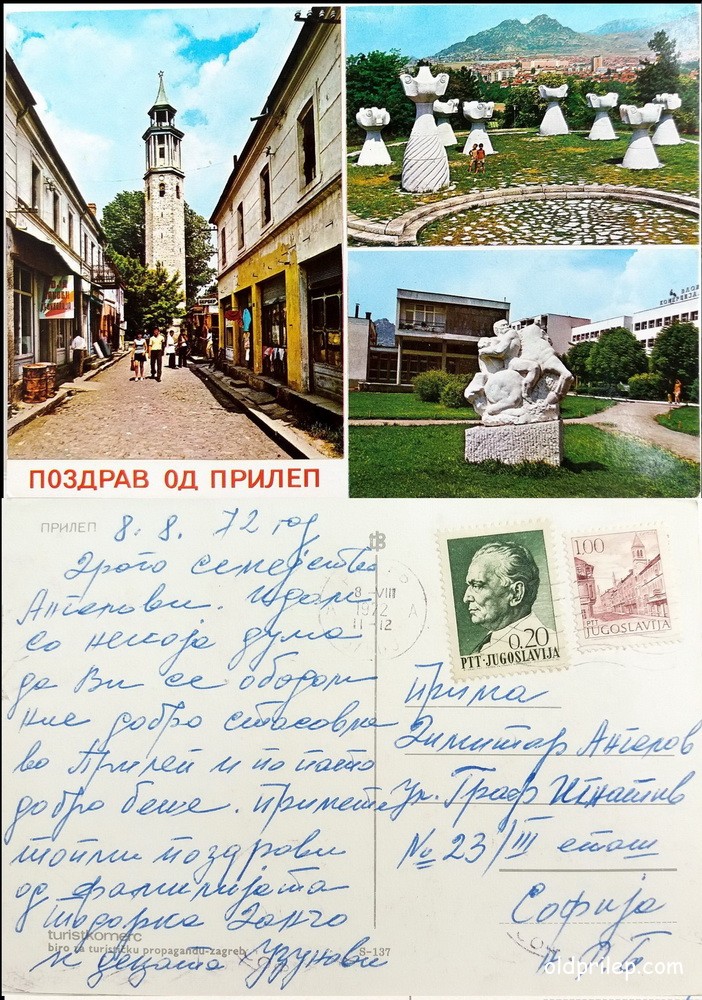 ПОЗДРАВ ОД ПРИЛЕП
ПРИЛЕП
8. 8. 72 год
Драго семејство
Ангелови. Идам
со некоја дума
да Ви се обадам
ние добро стасовме
во Прилеп и по пато
добро беше. Примете
топли поздрови
од фамилијата
Тодорка Занчо
и децата Узунови
turistkomerc
biro za turističku propagandu-zagreb
S-137
8-VIII
1972
11-12
A
0,20
PTT·JUGOSLAVIJA
1.00
PTT
JUGOSLAVIJA
Прима
Димитар Ангелов
Ул. Граф Игнатив
№ 23/III еташ
Софија
oldprilep.com